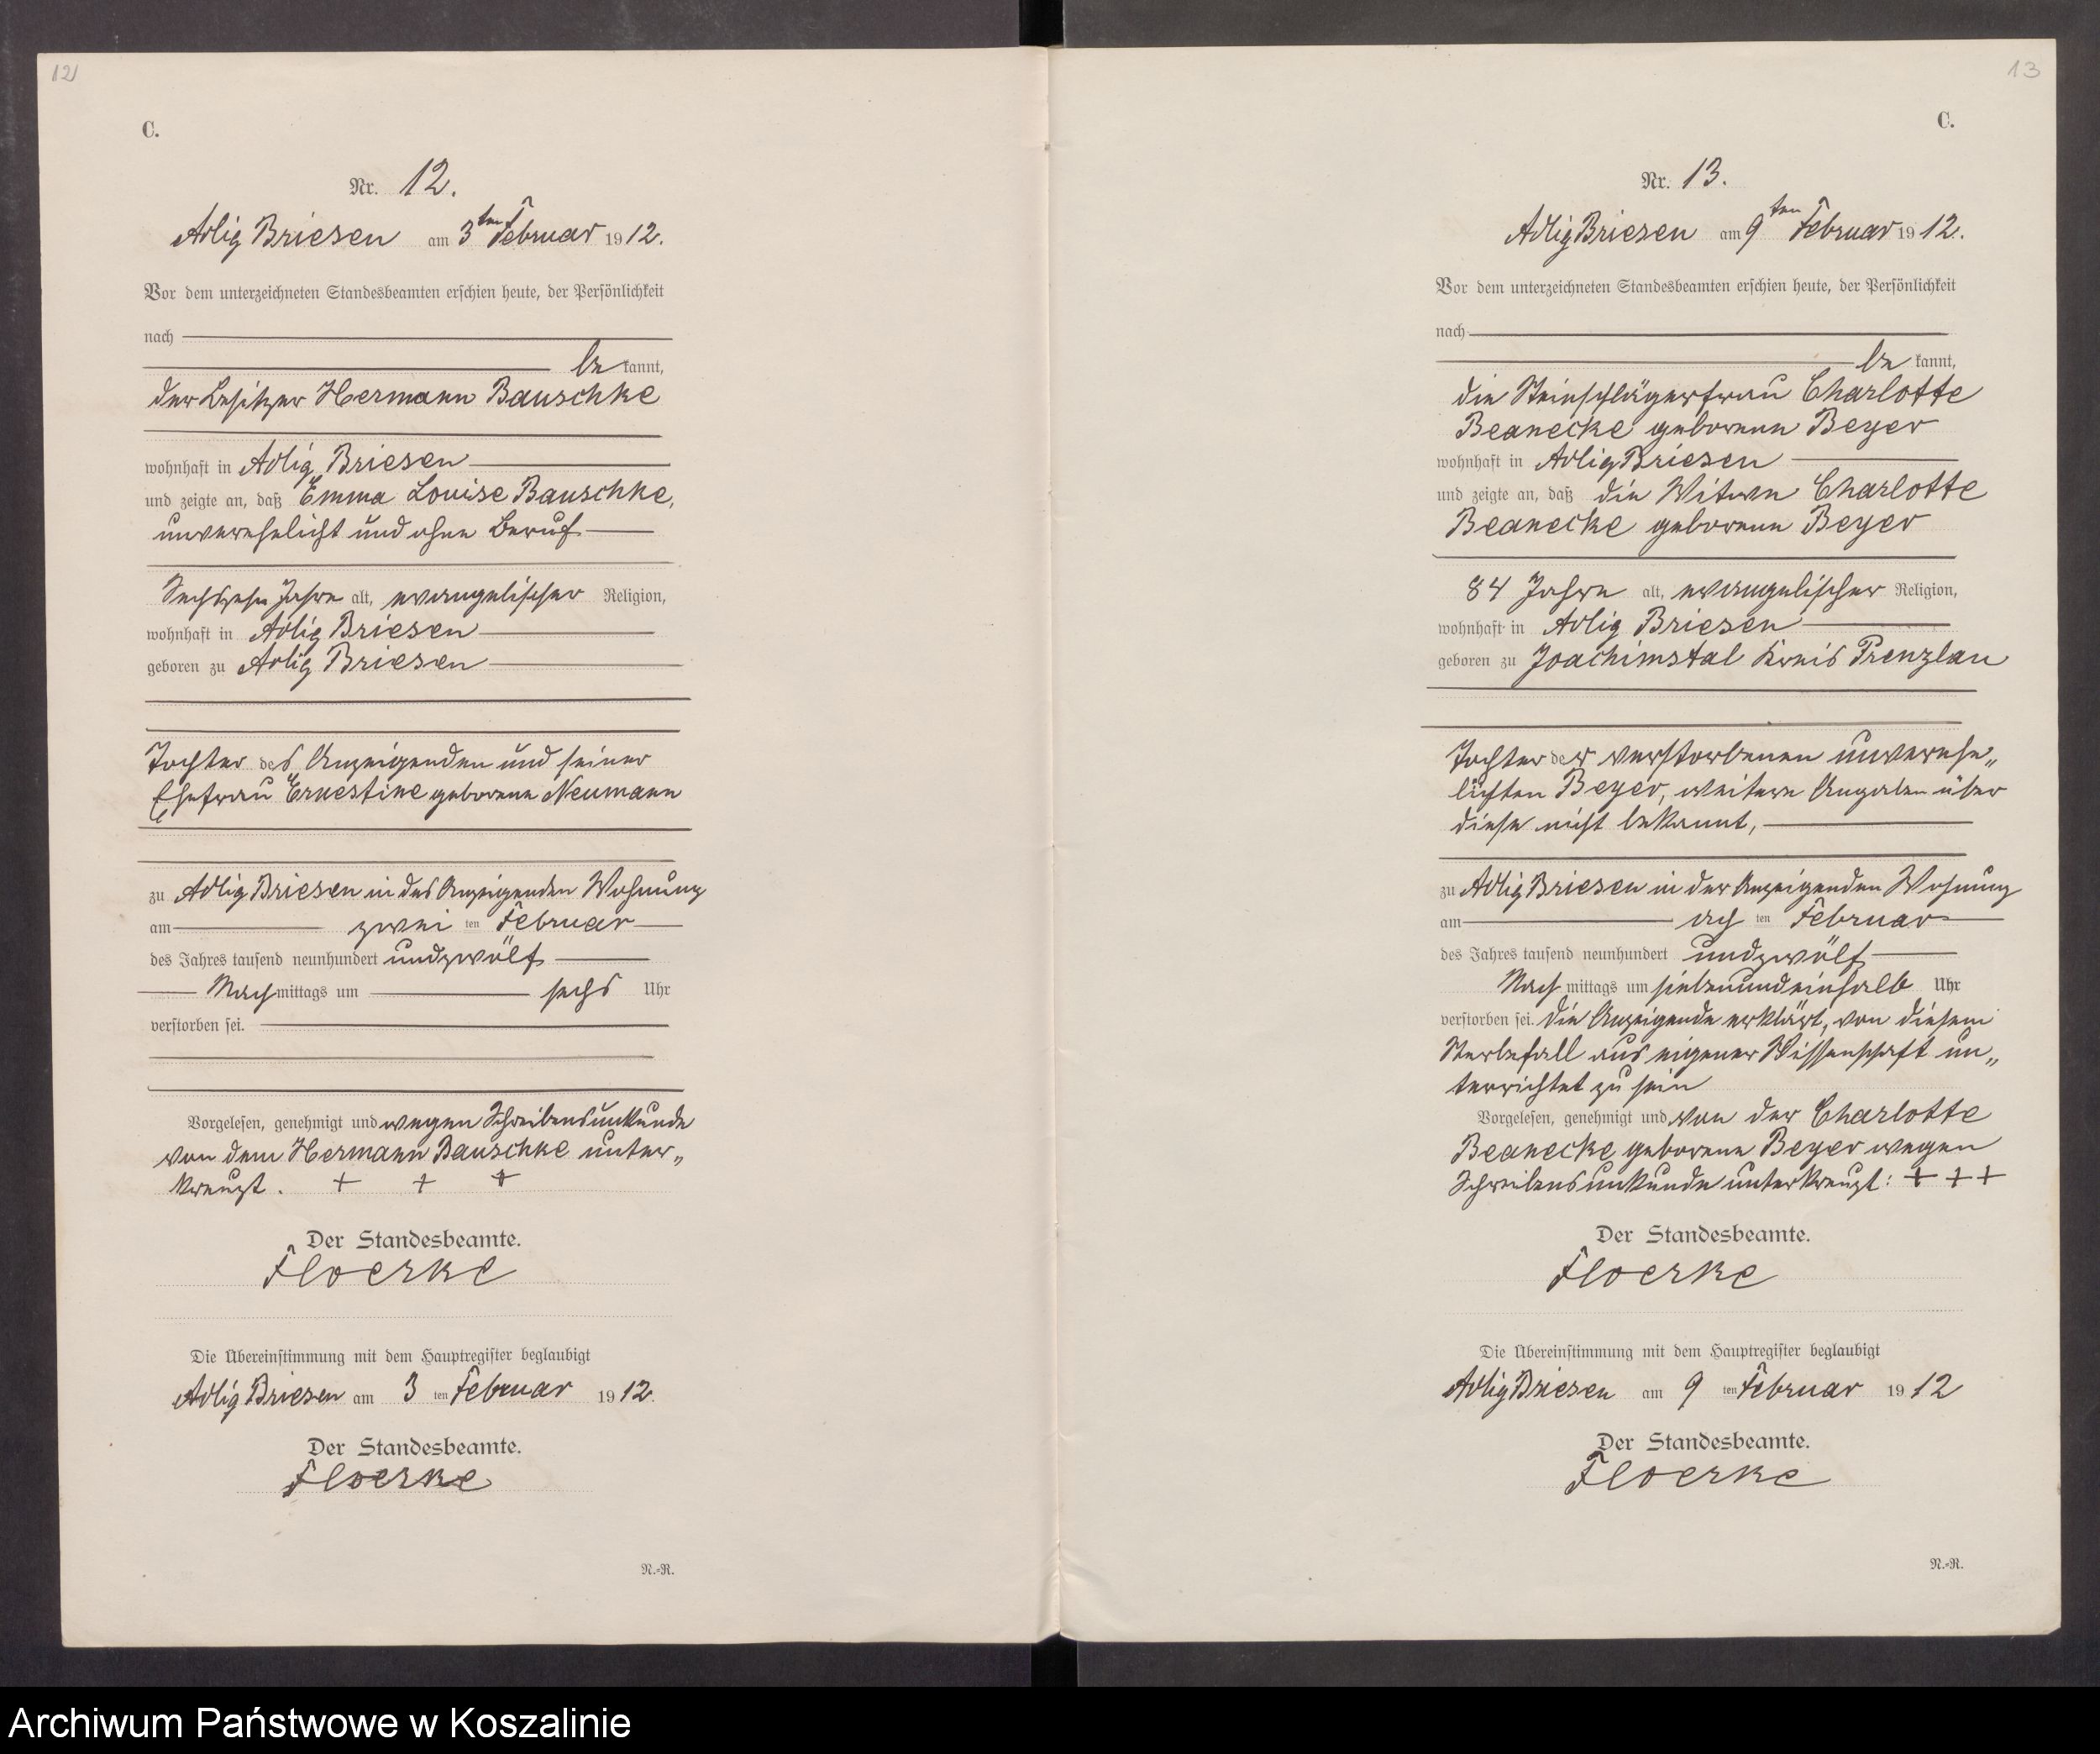 12
C.
Nr. 12.
Adlig Briesen am 3ten Februar 1912.
Vor dem unterzeichneten Standesbeamten erschien heute, der Persönlichkeit
nach
be kannt,
der Besitzer Hermann Bauschke
wohnhaft in Adlig Briesen
und zeigte an, daß Emma Louise Bauschke,
unverehelicht und ohne Beruf
Sechszehn Jahre alt, evangelischer Religion,
wohnhaft in Adlig Briesen
geboren zu Adlig Briesen
Tochter des Anzeigenden und seiner
Ehefrau Ernestine geborene Neumann
zu Adlig Briesen in des Anzeigenden Wohnung
am zwei ten Februar
des Jahres tausend neunhundert undzwölf
Nach mittags um sechs Uhr
verstorben sei.
Vorgelesen, genehmigt und wegen Schreibensunkunde
von dem Hermann Bauschke unter„
kreuzt. + + +
Der Standesbeamte.
Floerke
Die Übereinstimmung mit dem Hauptregister beglaubigt
Adlig Briesen am 3 ten Februar 1912.
Der Standesbeamte.
Floerke
N.=R.
13
C.
Nr. 13.
Adlig Briesen am 9ten Februar 1912.
Vor dem unterzeichneten Standesbeamten erschien heute, der Persönlichkeit
nach
be kannt,
die Steinschlägerfrau Charlotte
Beanecke geborene Beyer
wohnhaft in Adlig Briesen
und zeigte an, daß die Witwe Charlotte
Beanecke geborene Beyer
84 Jahre alt, evangelischer Religion,
wohnhaft in Adlig Briesen
geboren zu Joachimstal Kreis Prenzlau
Tochter der verstorbenen unverehe„
lichten Beyer, weitere Angaben über
diese nicht bekannt,
zu Adlig Briesen in der Anzeigenden Wohnung
am ach ten Februar
des Jahres tausend neunhundert undzwölf
Nach mittags um siebenundeinhalb Uhr
verstorben sei. Die Anzeigende erklärt, von diesem
Sterbefall aus eigener Wissenschaft un„
terrichtet zu sein
Vorgelesen, genehmigt und von der Charlotte
Beanecke geborene Beyer wegen
Schreibensunkunde unterkreuzt: + + +
Der Standesbeamte.
Floerke
Die Übereinstimmung mit dem Hauptregister beglaubigt
Adlig Briesen am 9 ten Februar 1912
Der Standesbeamte.
Floerke
N.=R.
Archiwum Państwowe w Koszalinie